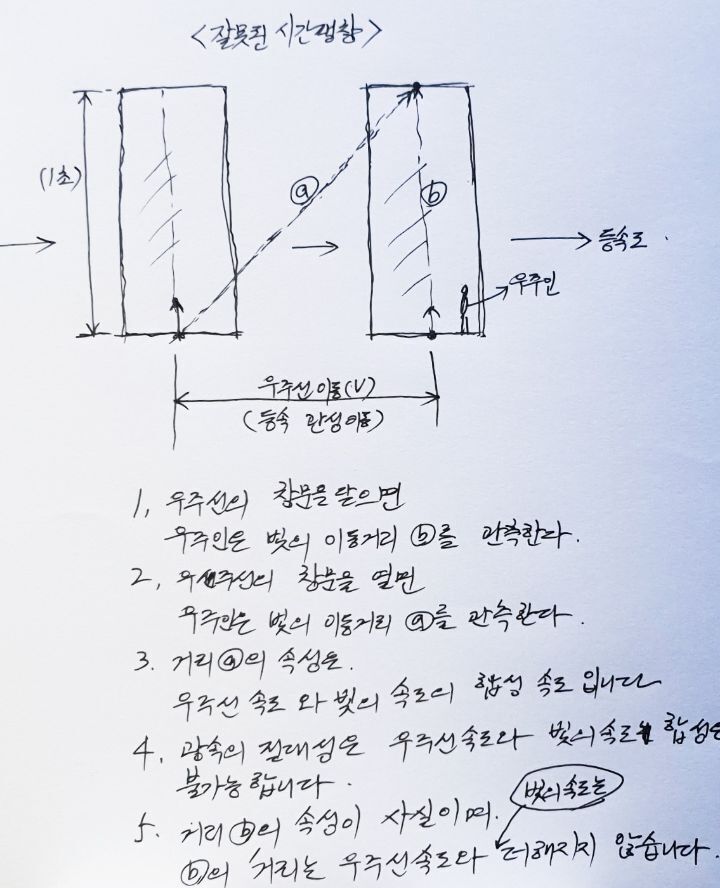 <잘못된 시간팽창>
(1초)
ⓐ
ⓑ
등속도.
우주인
우주선이동(V)
(등속 관성이동)
1, 우주선의 창문을 닫으면
우주인은 빛의 이동거리 ⓑ를 관측한다.
2, 우주선의 창문을 열면
우주인은 빛의 이동거리 ⓐ를 관측한다.
3. 거리ⓐ의 속성은.
우주선 속도와 빛의 속도의 합성 속도입니다
4, 광속의 절대성은 우주선속도와 빛의속도 합성은
불가능합니다.
빛의속도는
5. 거리ⓑ의 속성이 사실이며.
ⓑ의 거리는 우주선속도와 더해지지 않습니다.